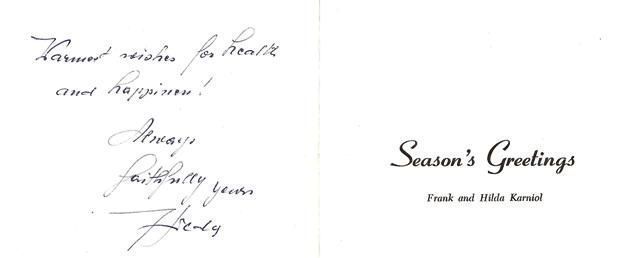 Warmest wishes for health
and happiness!
Always
faithfully yours
Hilda
Season's Greetings
Frank and Hilda Karniol